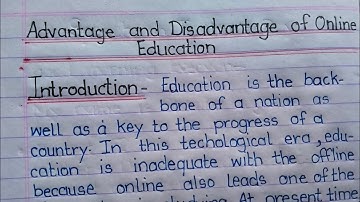 Advantage and Disadvantage of Online
Education
Introduction - Education is the back-
bone of a nation as
well as a key to the progress of a
country. In this techological era, edu-
cation is inadequate with the offline
because online also leads one of the
At present time